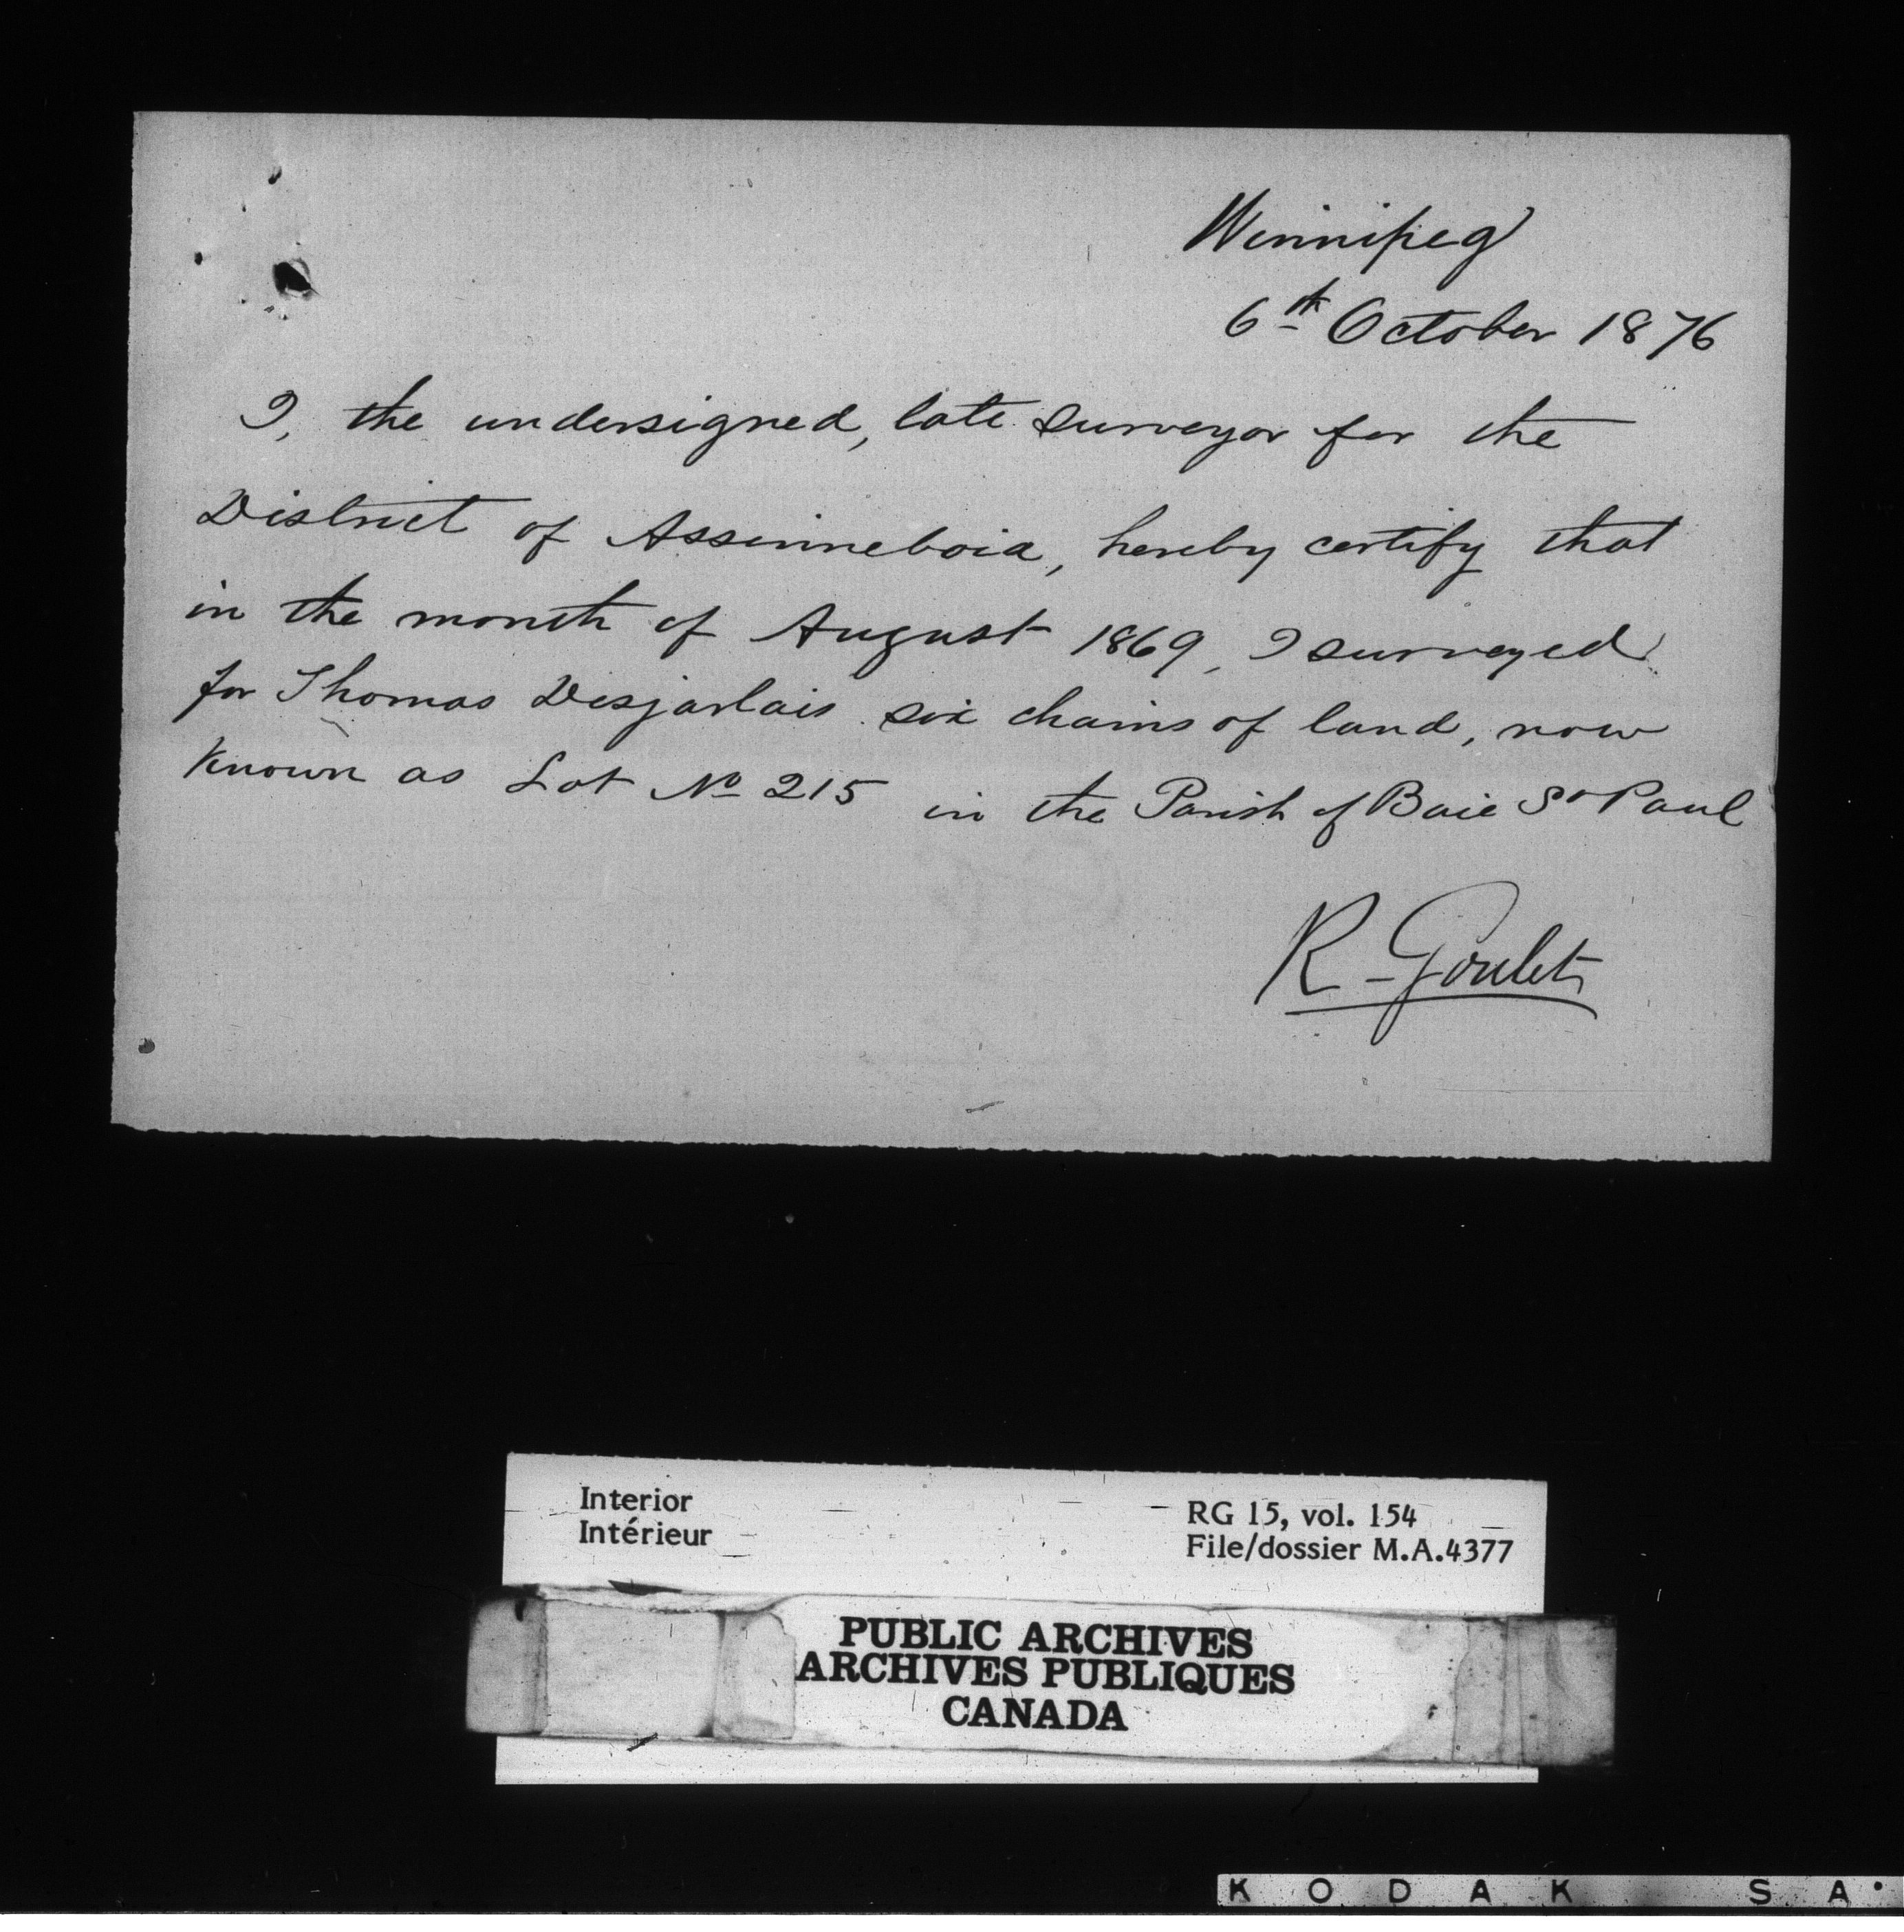 Winnipeg
6th October 1876
I, the undersigned, late surveyor for the
District of Assinneboia, hereby certify that
in the month of August 1869, I surveyed
for Thomas Desjarlais six chains of land, now
Known as Lot No 215 in the Parish of Baie St Paul
R - Goulet
Interior
Intérieur
RG 15, vol. 154
File/dossier M.A.4377
PUBLIC ARCHIVES
ARCHIVES PUBLIQUES
CANADA
KODAK SA